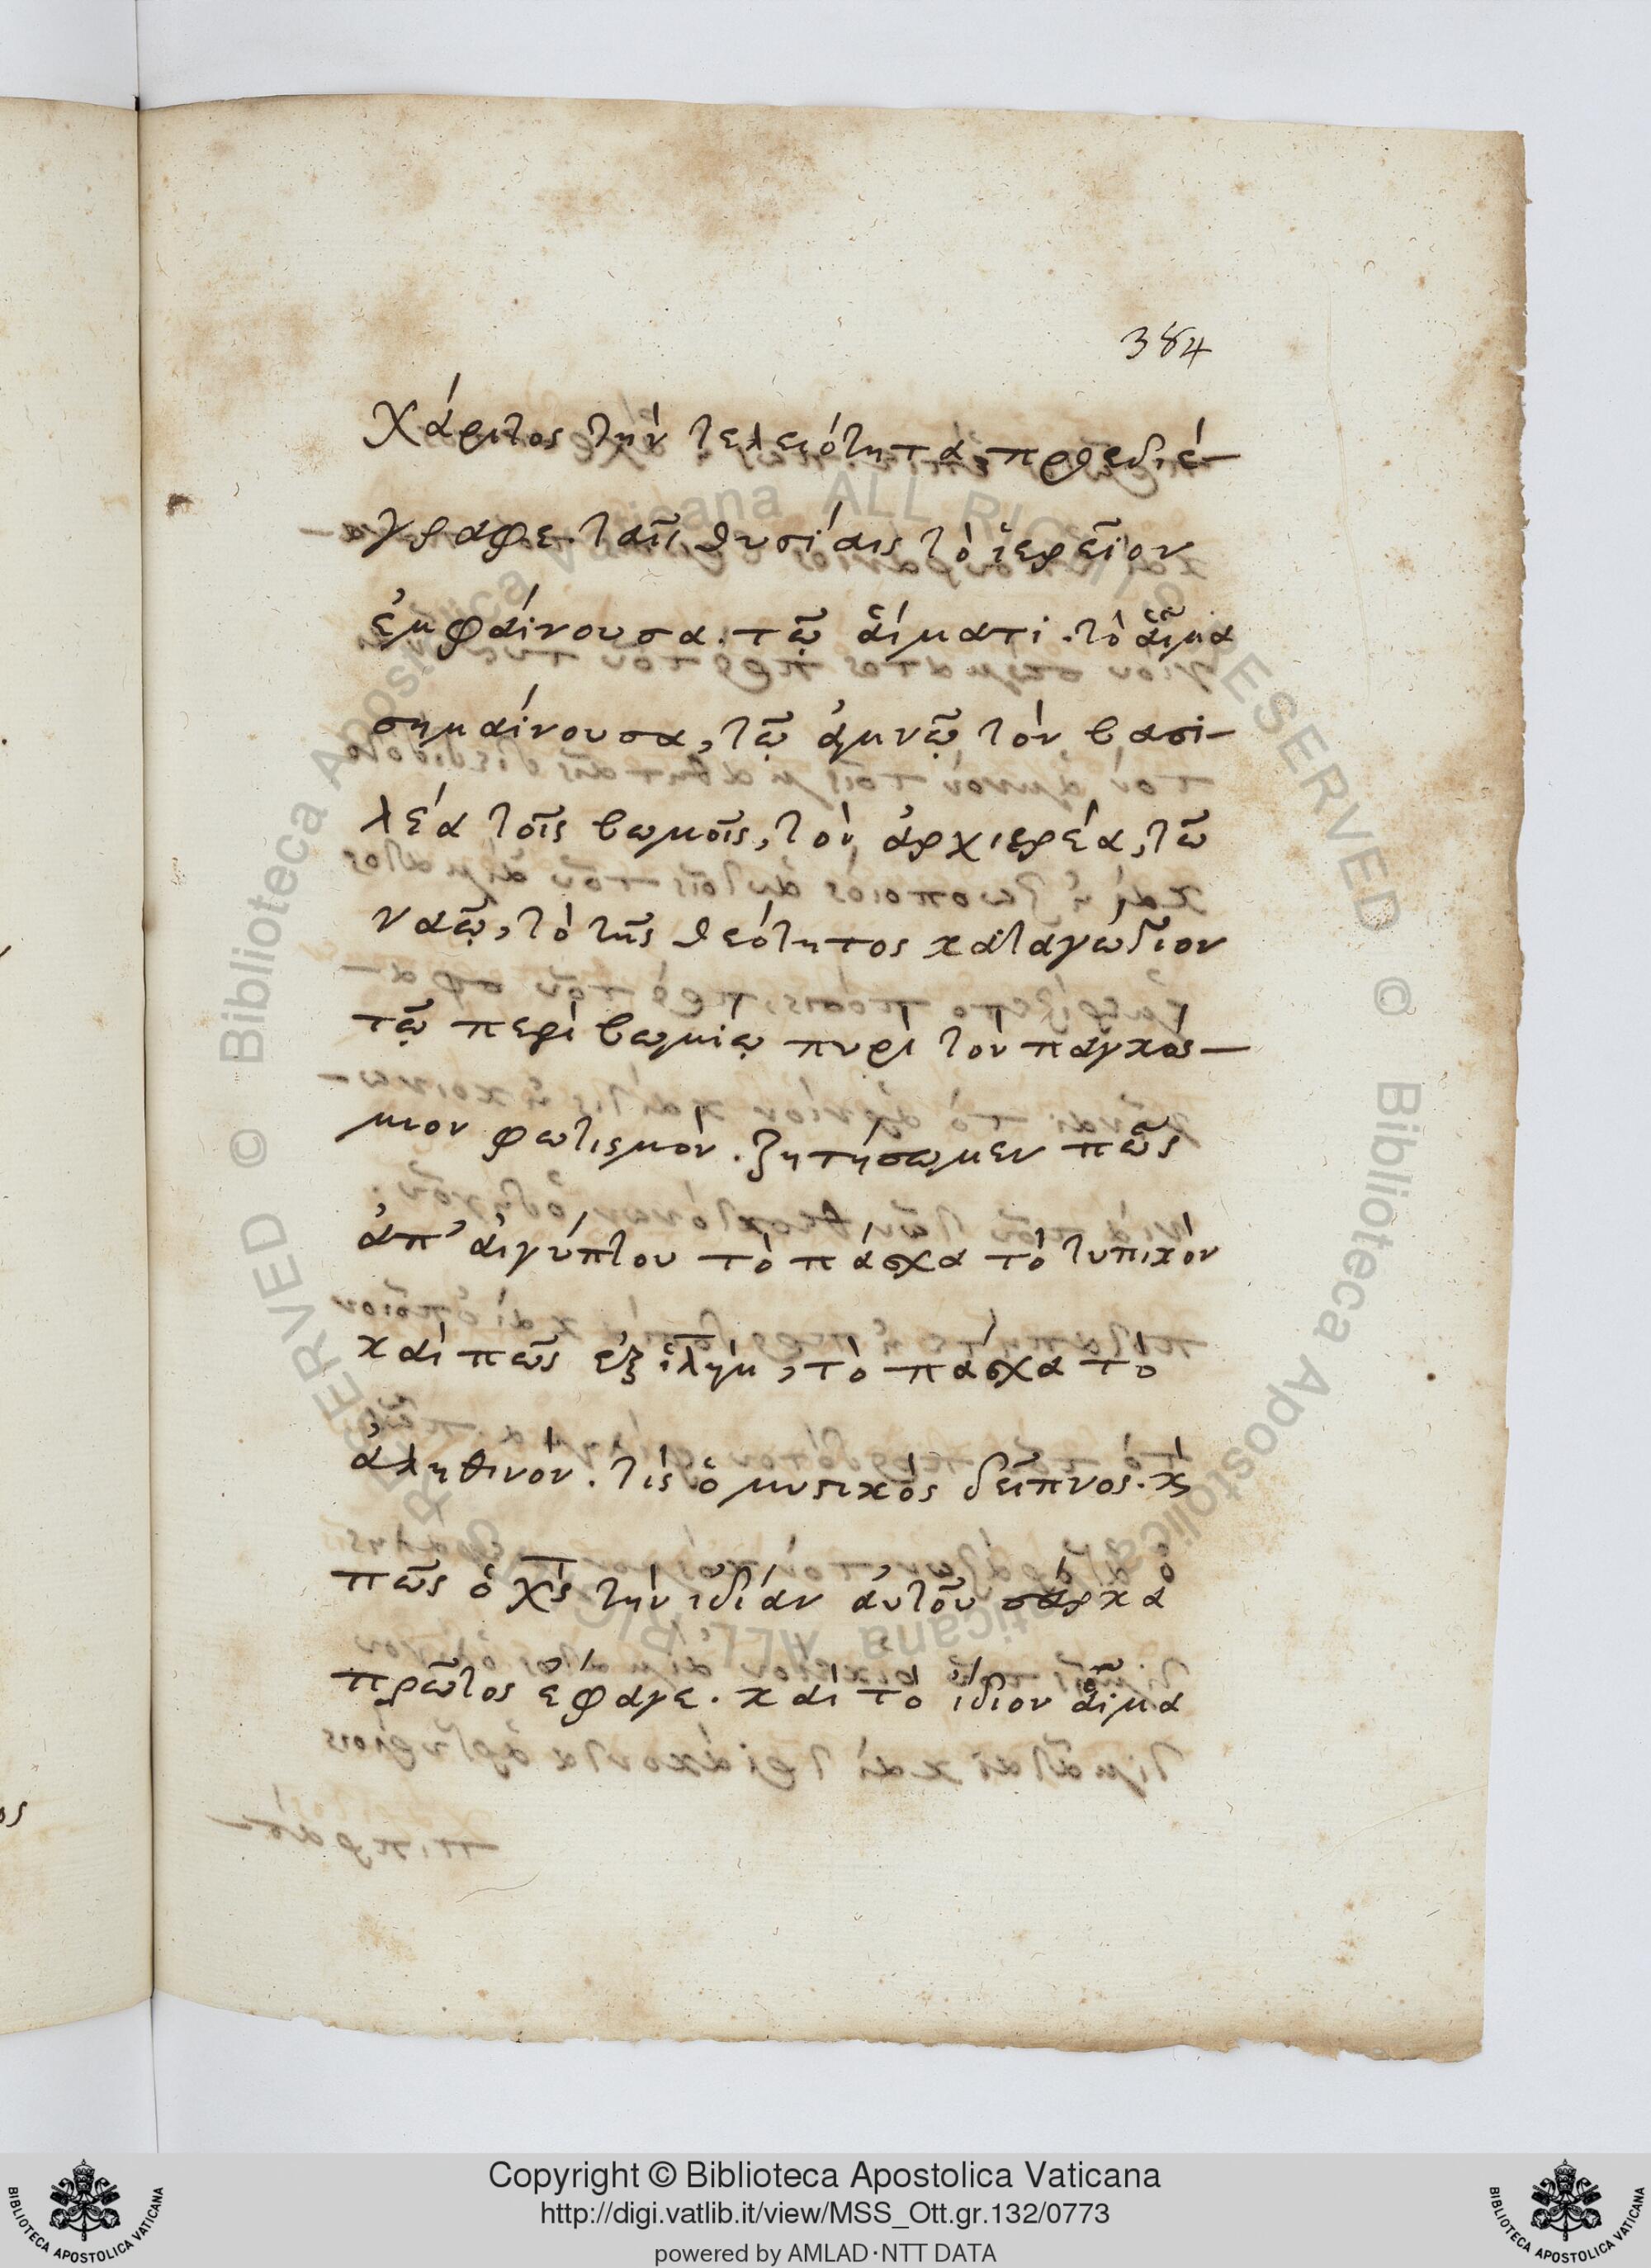 384
Χάριτος τὴν τελειότητα, προεδιέ-
γραφε. ταῖς θυσίαις τὸ ἱερεῖον
ἐμφαίνουσα. τῷ ἅιματι. τὸ ἇιμα
σημαίνουσα, τῷ ἀμνῷ τὸν βασι-
λέα τοῖς βωμοῖς, τὸν ἀρχιερέα, τῶ
ναῷ, τὸ τῆς θεότητος καταγώγιον
τῷ περὶ βωμίῳ πυρὶ τὸν παγκόσ-
μιον φωτισμὸν. ζητήσωμεν πῶς
ἀπ' ἀιγύπτου τὸ πάσχα τὸ τυπικὸν
καὶ πῶς ἐξ ἱλὴμ, τὸ πάσχα τὸ
ἀληθινὸν. τίς ὁ μυστικὸς δεῖπνος. κ
πῶς ὁ χς τὴν ἰδίαν ἀυτοῦ σάρκα
πρῶτος ἔφαγε. καὶ τὸ ἴδιον ἇιμα
Copyright © Biblioteca Apostolica Vaticana
http://digi.vatlib.it/view/MSS_Ott.gr.132/0773
powered by AMLAD·NTT DATA
BIBLIOTECA APOSTOLICA VATICANA
BIBLIOTECA APOSTOLICA VATICANA